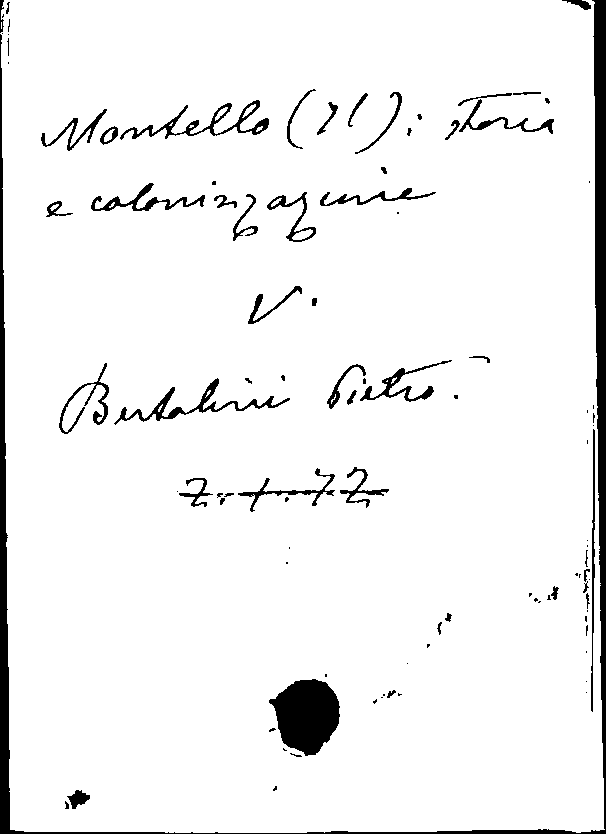 Montello (Il): storia
e colonizzazione
V.
Bertolini Pietro.
Z.1.72